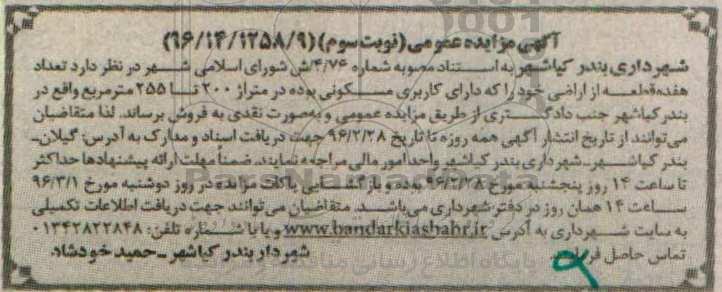 آگهی مزایده عمومی (نوبت سوم) (۹۶/۱۴/۱۲۵۸/۹)
شهرداری بندر کیاشهر به استناد مصوبه شماره ۴/۷۶/ش شورای اسلامی شهر در نظر دارد تعداد
هفده قطعه از اراضی خود را که دارای کاربری مسکونی بوده در متراژ ۲۰۰ تا ۲۵۵ مترمربع واقع در
بندر کیاشهر جنب دادگستری از طریق مزایده عمومی و به‌صورت نقدی به فروش برساند. لذا متقاضیان
می‌توانند از تاریخ انتشار آگهی همه روزه تا تاریخ ۹۶/۲/۲۸ جهت دریافت اسناد و مدارک به آدرس: گیلان ـ
بندر کیاشهر ـ شهرداری بندر کیاشهر واحد امور مالی مراجعه نمایند. ضمناً مهلت ارائه پیشنهادها حداکثر
تا ساعت ۱۴ روز پنجشنبه مورخ ۹۶/۲/۲۸ بوده و بازگشایی پاکات مزایده در روز دوشنبه مورخ ۹۶/۳/۱
ساعت ۱۴ همان روز در دفتر شهرداری می‌باشد. متقاضیان می‌توانند جهت دریافت اطلاعات تکمیلی
به سایت شهرداری به آدرس www.bandarkiashahr.ir و یا با شماره تلفن: ۰۱۳۴۲۸۲۲۸۴۸
تماس حاصل فرمایند.
شهردار بندر کیاشهر ـ حمید خودشاد
ParsNamadData
پایگاه اطلاع رسانی